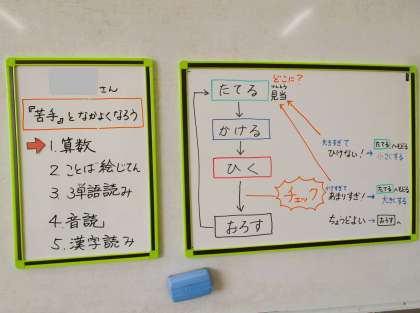 さん
『苦手』となかよくなろう
1. 算数
2. ことば絵じてん
3. 3単語読み
4. 音読
5. 漢字読み
たてる
どこに?
けんとう
見当
かける
ひく
チェック
おろす
大きすぎて
ひけない! → たてるへもどる
小さくする
小さすぎて
あまりすぎ! → たてるへもどる
大きくする
ちょうどよい → おろすへ